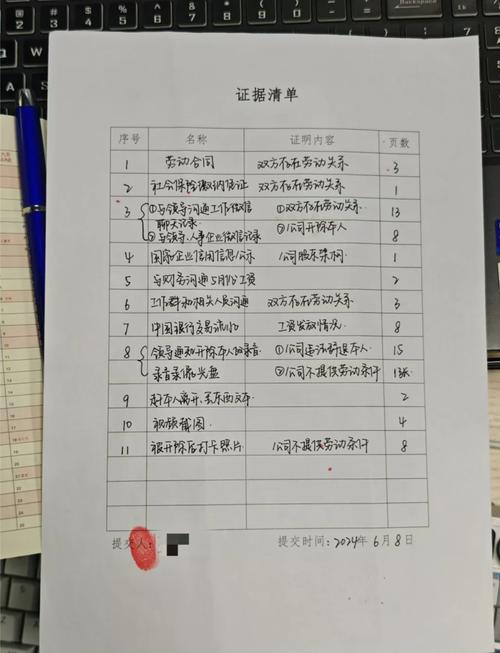 证据清单
序号 名称 证明内容 页数
1 劳动合同 双方存在劳动关系 3
2 社会保险缴纳凭证 双方存在劳动关系 1
3 ①与领导沟通工作微信 ①双方存在劳动关系 13
聊天记录 ②公司开除本人
②与领导、人事企业微信记录 8
4 国家企业信用信息公示 公司股东架构 1
5 与财务沟通5月份工资 2
6 工作群和相关人员沟通 双方存在劳动关系 3
7 中国银行交易流水 工资发放情况 8
8 领导通知开除本人的录音 ①公司违法辞退本人 15
录音录像光盘 ②公司不提供劳动条件 1张
9 赶本人离开、丢东西文本 2
10 视频截图 4
11 被开除后打卡照片 公司不提供劳动条件 8
提交人: 提交时间:2024年6月8日